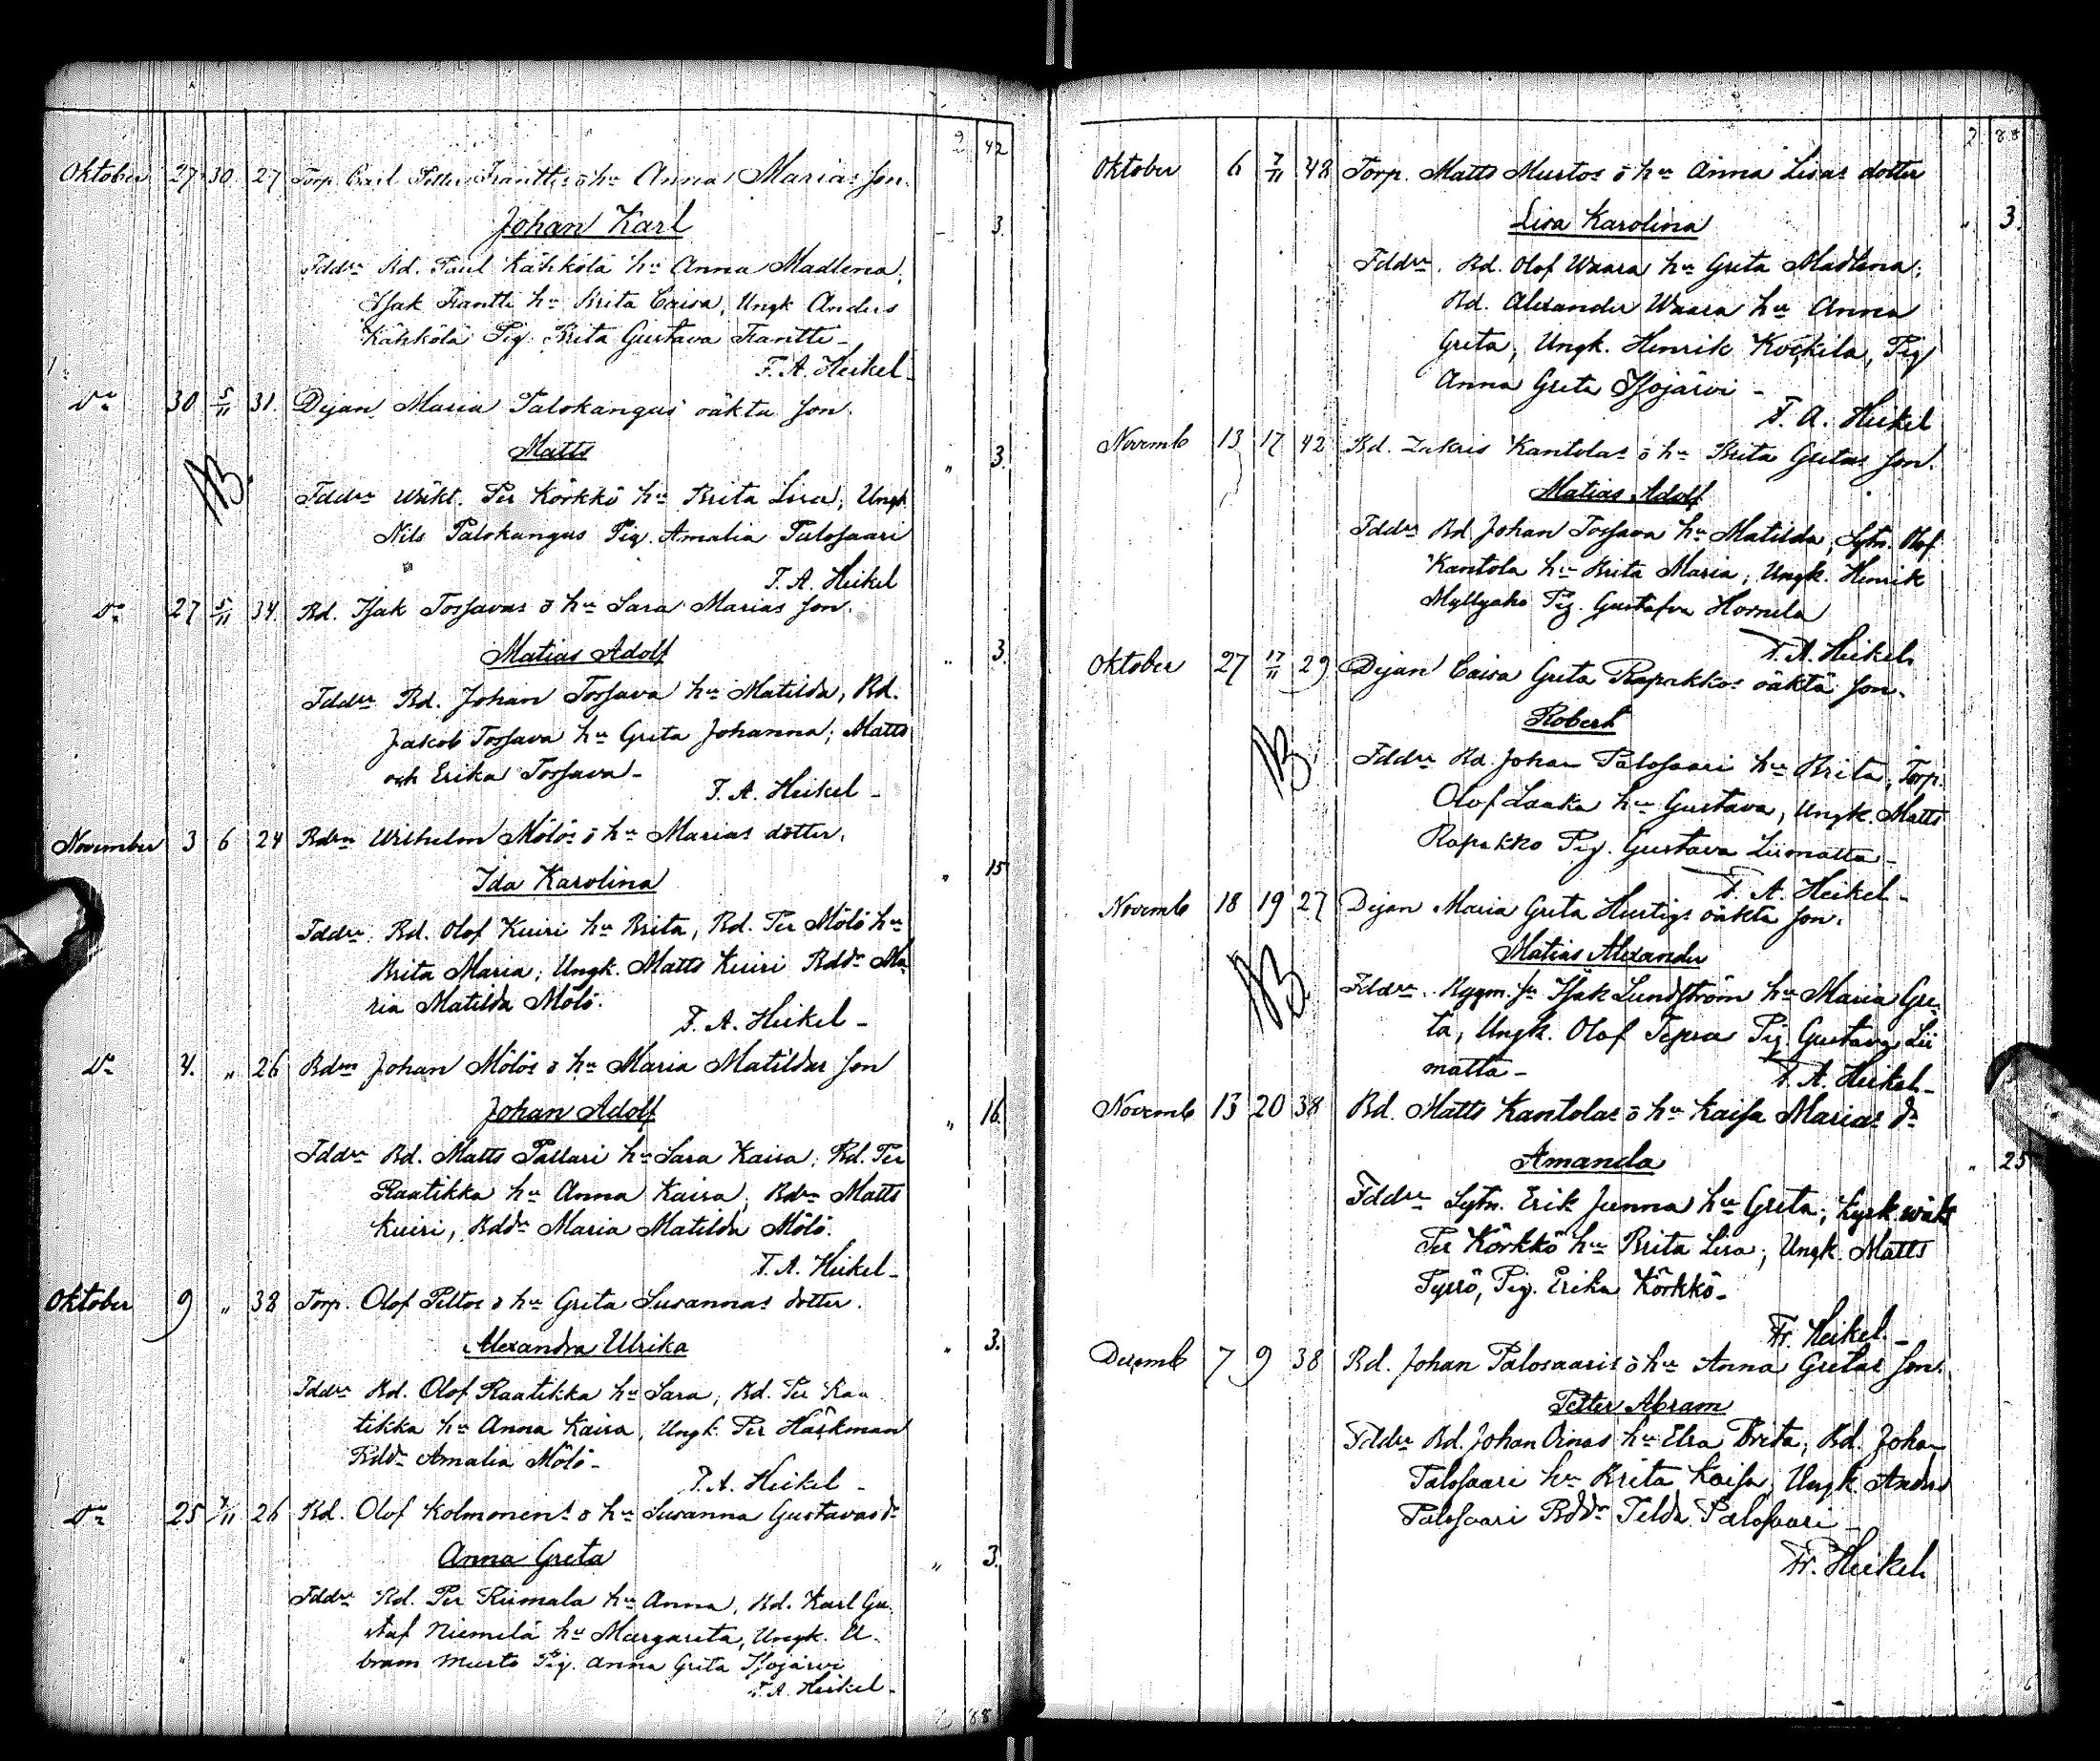 2 42
Oktober 27 30 27 Torp. Carl Petter Frantti ö hu Anna Marias son.
Johan Karl
- 3.
Fddr. Bd. Paul Kähkölä hu Anna Madlena;
Isak Frantti hu Brita Caisa, Ungk Anders
Kähkölä Pig. Brita Gustava Frantti -
F. A. Heikel -
Do 30 5/11 31. Dejan Maria Palokangas oäkta son.
Matts
" 3.
NB.
Fddr Wäkt. Per Körkkö hu Brita Lisa; Ungk
Nils Palokangas Pig. Amalia Palosaari
F. A. Heikel
Do 27 5/11 34. Bd. Isak Tossavas ö hu Sara Marias son.
Matias Adolf
" 3.
Fddr Bd. Johan Tossava hu Matilda, Bd.
Jakob Tossava hu Greta Johanna; Matts
och Erika Tossava -
F. A. Heikel -
November 3 6 24 Bdsn Wilhelm Mölös ö hu Marias dotter.
Ida Karolina
" 15
Fddr. Bd. Olof Kuiri hu Brita, Bd. Per Mölö hu
Brita Maria; Ungk. Matts Kuiri Bddr Ma-
ria Matilda Mölö.
F. A. Heikel -
Do 4. " 26 Bdsn Johan Mölös ö hu Maria Matildas son
Johan Adolf
" 16.
Fddr Bd. Matts Pallari hu Sara Kaisa; Bd. Per
Raatikka hu Anna Kaisa; Bdsn Matts
Kuiri, Bddr Maria Matilda Mölö.
F. A. Heikel -
Oktober 9 " 38 Torp. Olof Peltos ö hu Greta Susannas dotter.
Alexandra Ulrika
" 3.
Fddr Bd. Olof Raatikka hu Sara, Bd. Per Raa
tikka hu Anna Kaisa, Ungk. Per Häckman
Bddr Amalia Mölö -
F. A. Heikel -
Do 25 7/11 26 Bd. Olof Kolmonens ö hu Susanna Gustavas dr
Anna Greta
" 3.
Fddr Bd. Per Riimala hu Anna, Bd. Karl Gu-
staf Niemelä hu Margareta, Ungk. A-
bram Murto Pig. Anna Greta Isojärvi
F. A. Heikel -
88
2 88
Oktober 6 7/11 48 Torp. Matts Murtos ö hu Anna Lisas dotter
Lisa Karolina
" 3.
Fddr. Bd. Olof Waara hu Greta Madlena;
Bd. Alexander Waara hu Anna
Greta, Ungk. Henrik Kockila, Pig
Anna Greta Isojärvi -
F. A. Heikel
Novemb 13 17 42 Bd. Zakris Kantolas ö hu Brita Gretas son.
Matias Adolf
Fddr Bd. Johan Tossava hu Matilda, Sytn. Olof
Kantola hu Brita Maria, Ungk. Henrik
Myllyaho Pig. Gustafva Hornela
F. A. Heikel
Oktober 27 17/11 29 Dejan Caisa Greta Rapakkos oäkta son.
Robert
NB.
Fddr Bd. Johan Palosaari hu Brita, Torp.
Olof Laaka hu Gustava, Ungk. Matts
Rapakko Pig. Gustava Liimatta -
F. A. Heikel -
Novemb 18 19 27 Dejan Maria Greta Hurtigs oäkta son.
Matias Alexander
NB.
Fddr. Bygm. Isak Lundström hu Maria Gre-
ta, Ungk. Olof Tepsa Pig. Gustava Lii
matta -
F. A. Heikel -
Novemb 13 20 38 Bd. Matts Kantolas ö hu Kaisa Marias dr
Amanda
" 25
Fddr Sytn. Erik Junna hu Greta; Kyrkwäkt
Per Körkkö hu Brita Lisa; Ungk. Matts
Pig. Erika Körkkö -
Fr. Heikel -
Decemb 7 9 38 Bd. Johan Palosaaris ö hu Anna Gretas son.
Petter Abram
Fddr Bd. Johan Oinas hu Elsa Brita, Bd. Johan
Palosaari hu Brita Kaisa, Ungk. Anders
Palosaari Bddr Tilda Palosaari -
Fr. Heikel